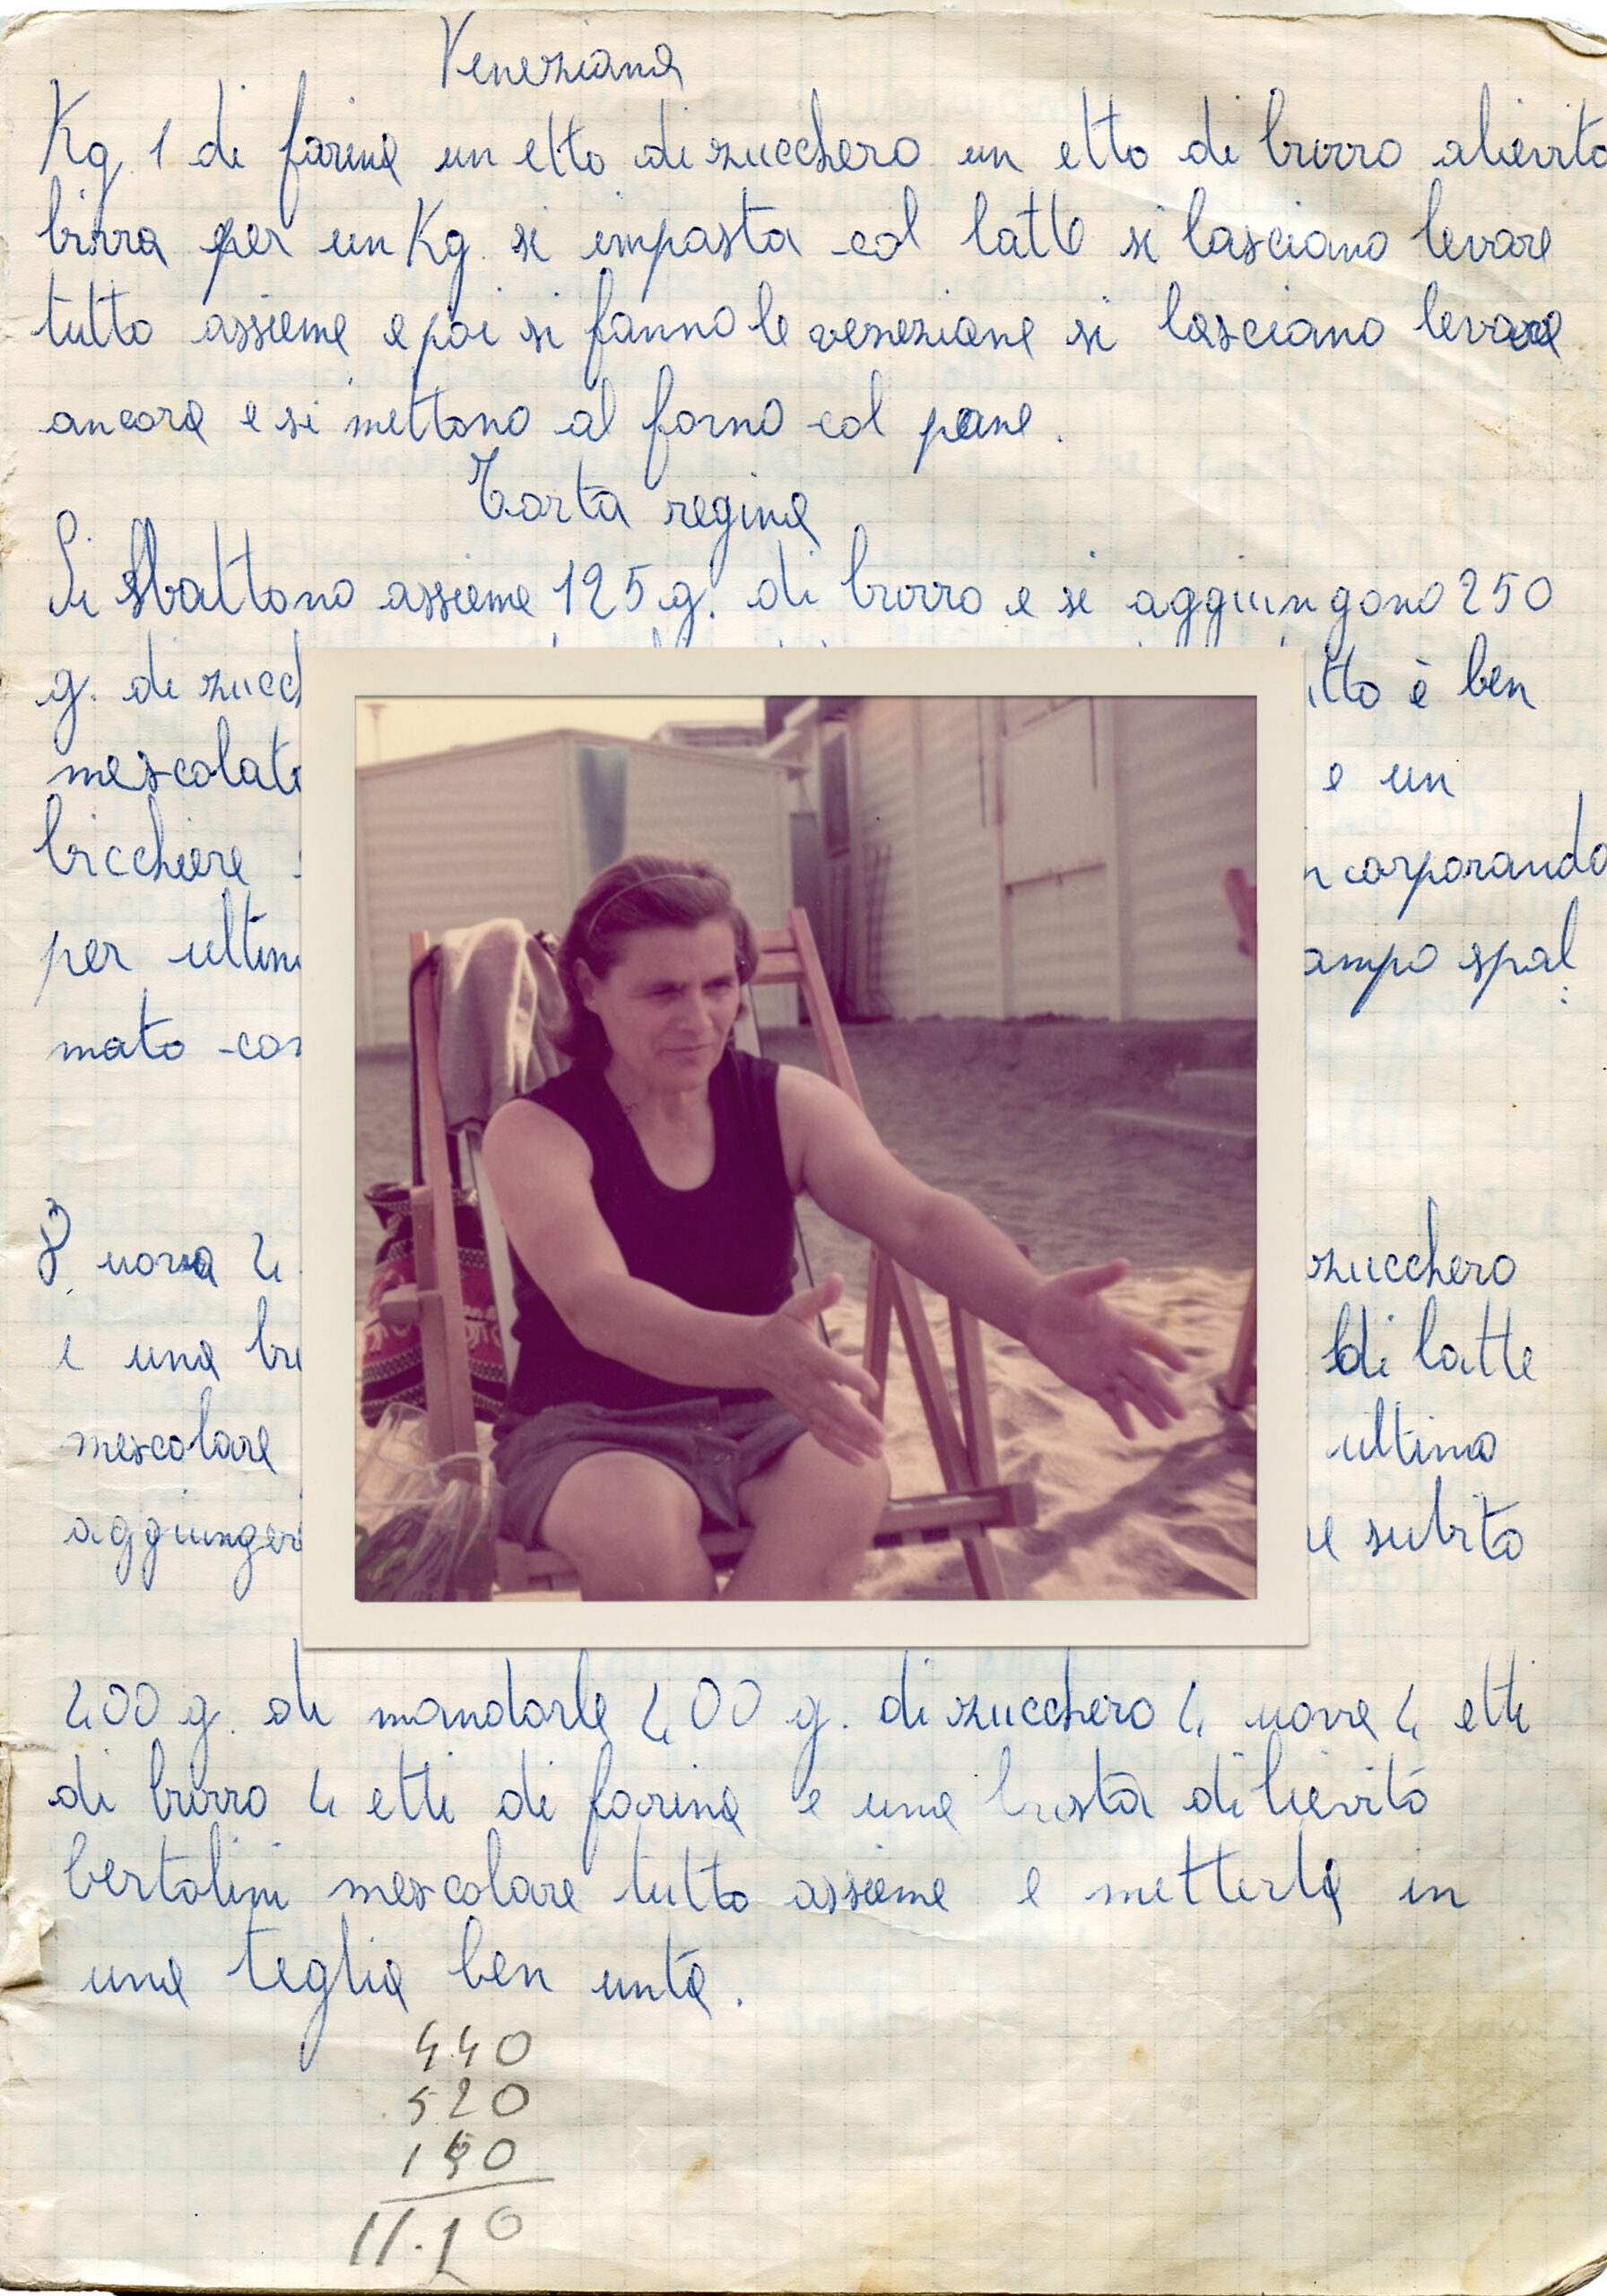 Veneziana
Kg. 1 di farina un etto di zucchero un etto di burro alievito
birra per un Kg. si impasta col latte si lasciano levare
tutto assieme e poi si fanno le veneziane si lasciano levare
ancora e si mettono al forno col pane.
Torta regina
Si sbattono assieme 125 g. di burro e si aggiungono 250
g. di zucch itto è ben
mescolato e un
bicchiere ncorporando
per ultim ampo spal
mato con
3 uova 4 zucchero
e una bu di latte
mescolare ultimo
aggiunger e subito
400 g. di mandorle 400 g. di zucchero 4 uova 4 etti
di burro 4 etti di farina e una busta di lievito
bertolini mescolare tutto assieme e metterla in
una teglia ben unta.
440
520
150
11.10